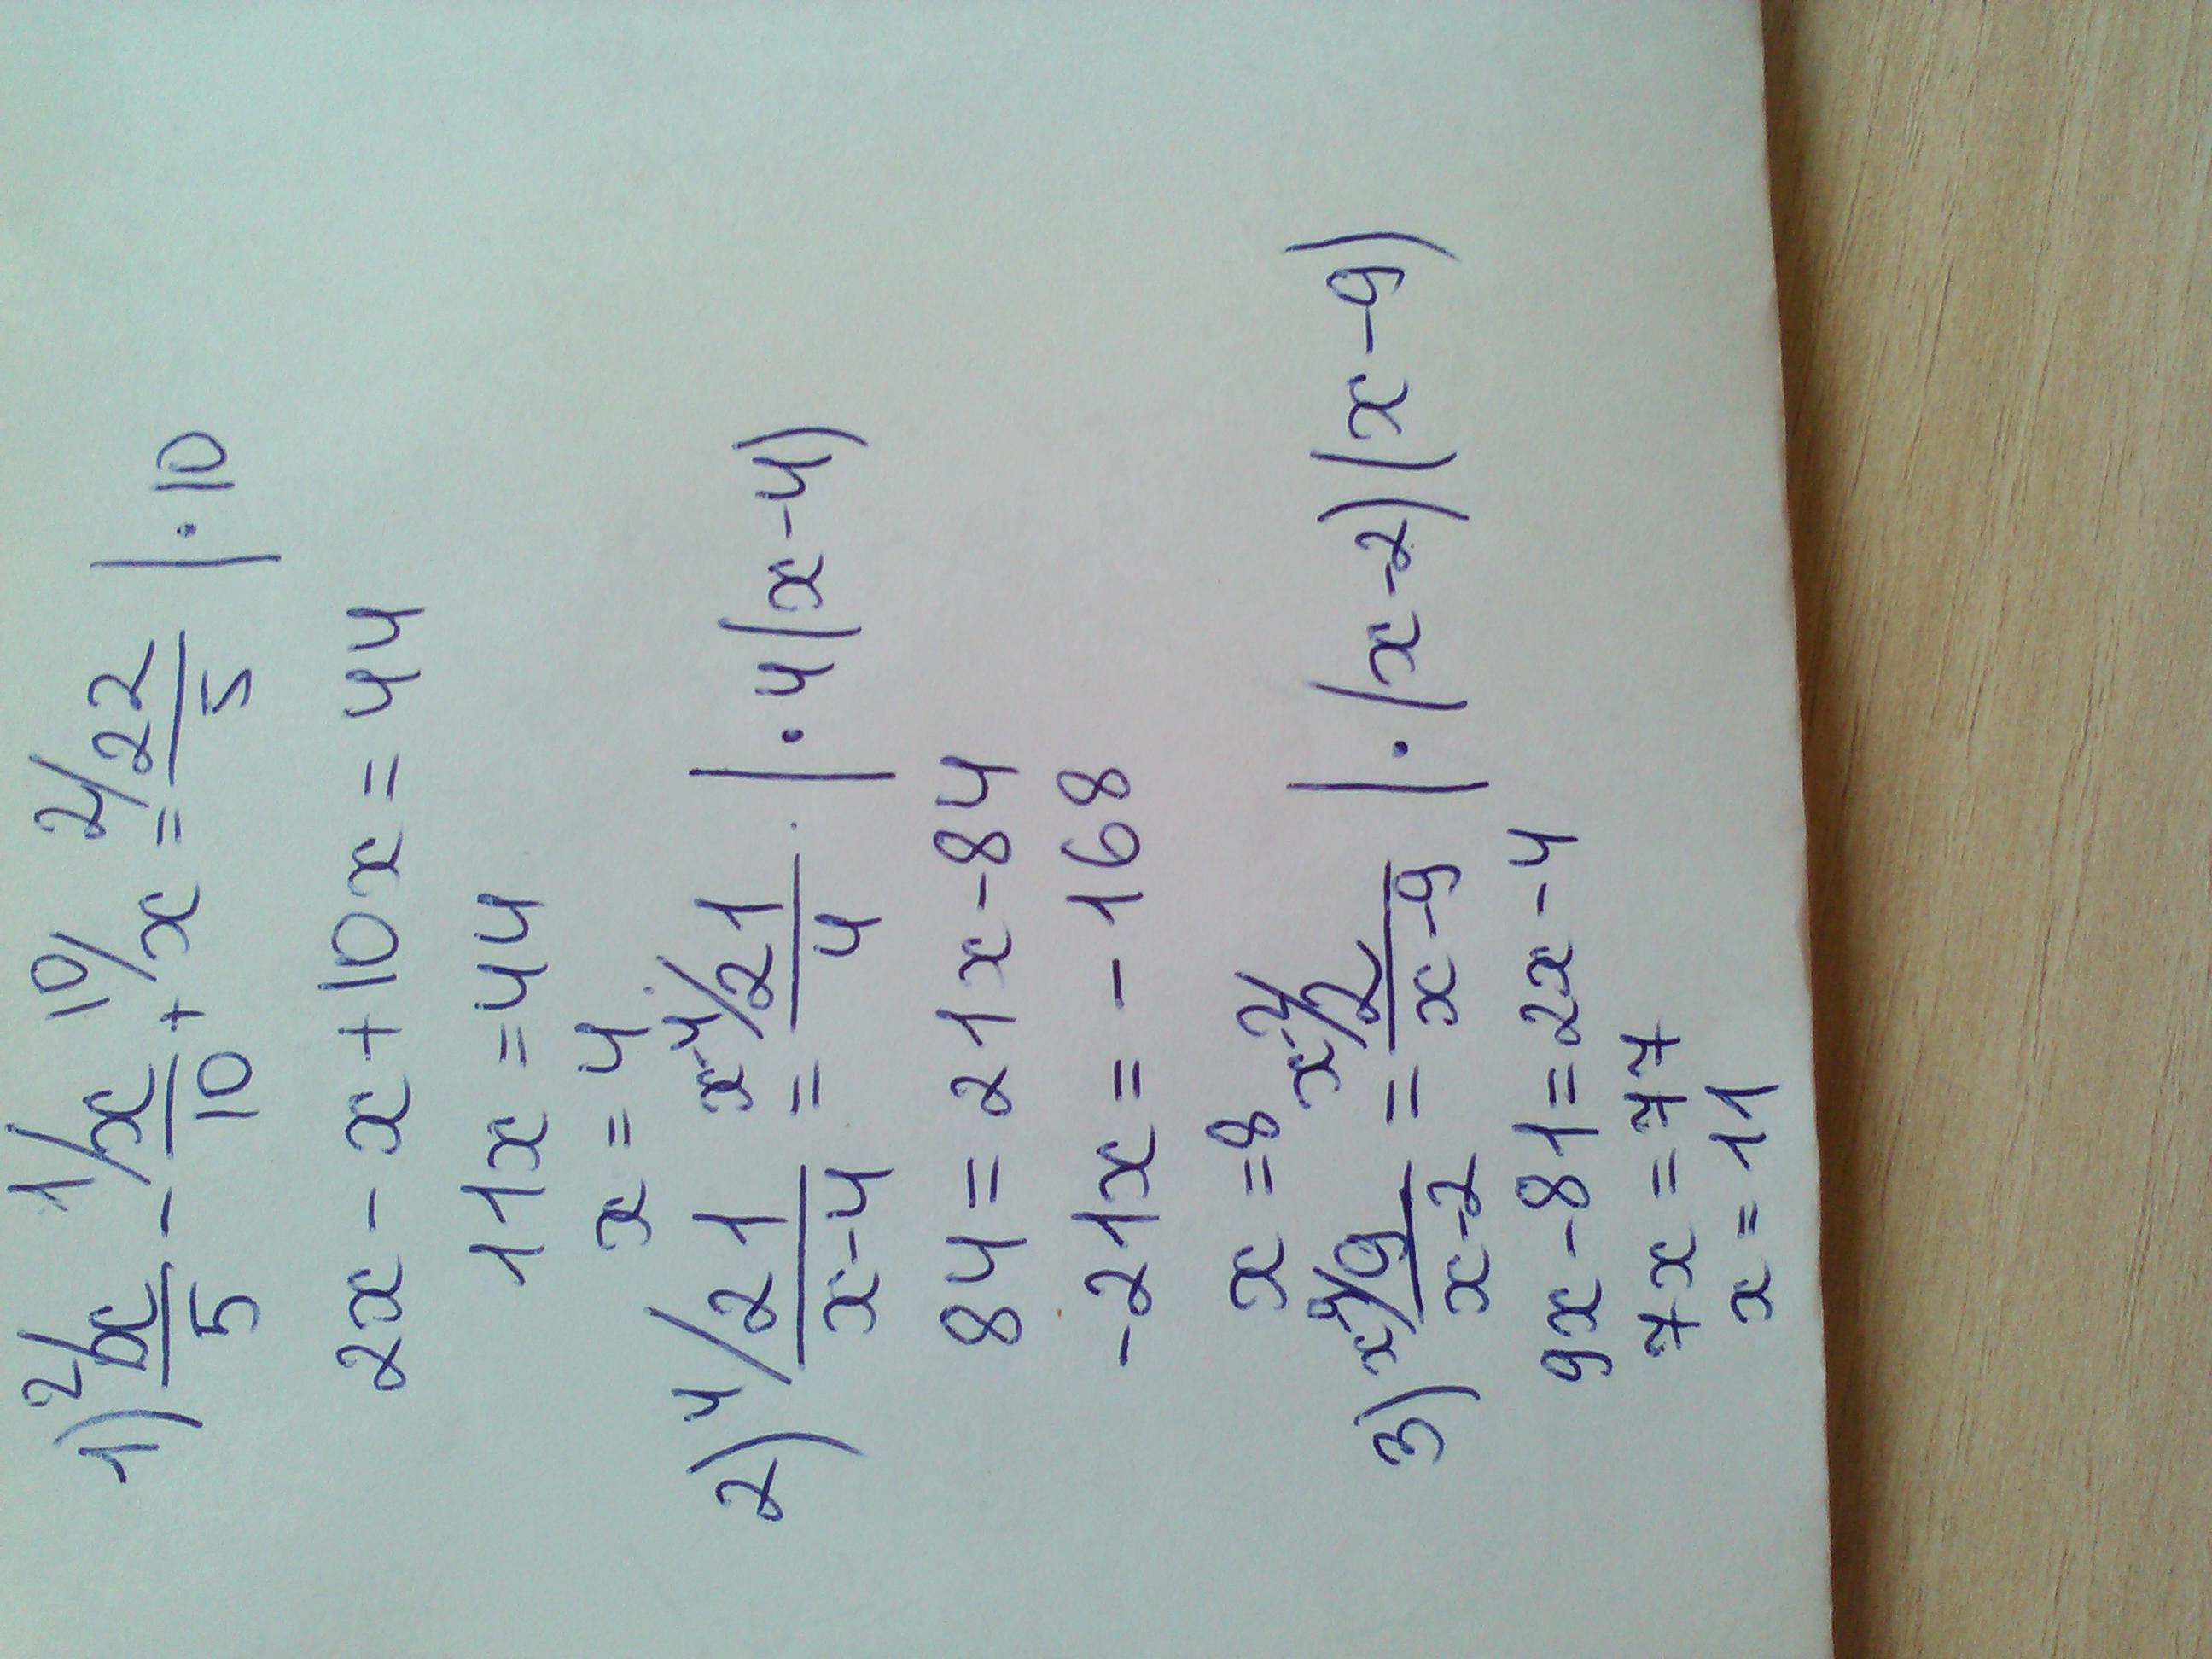 1) 2/ x/5 - 1/ x/10 + 10/ x = 2/ 22/5 | · 10
2x - x + 10x = 44
11x = 44
x = 4
2) 4/ 21/x-4 = x-4/ 21/4 | · 4(x-4)
84 = 21x - 84
-21x = -168
x = 8
3) x-9/ 9/x-2 = x-2/ 2/x-9 | · (x-2)(x-9)
9x - 81 = 2x - 4
7x = 77
x = 11